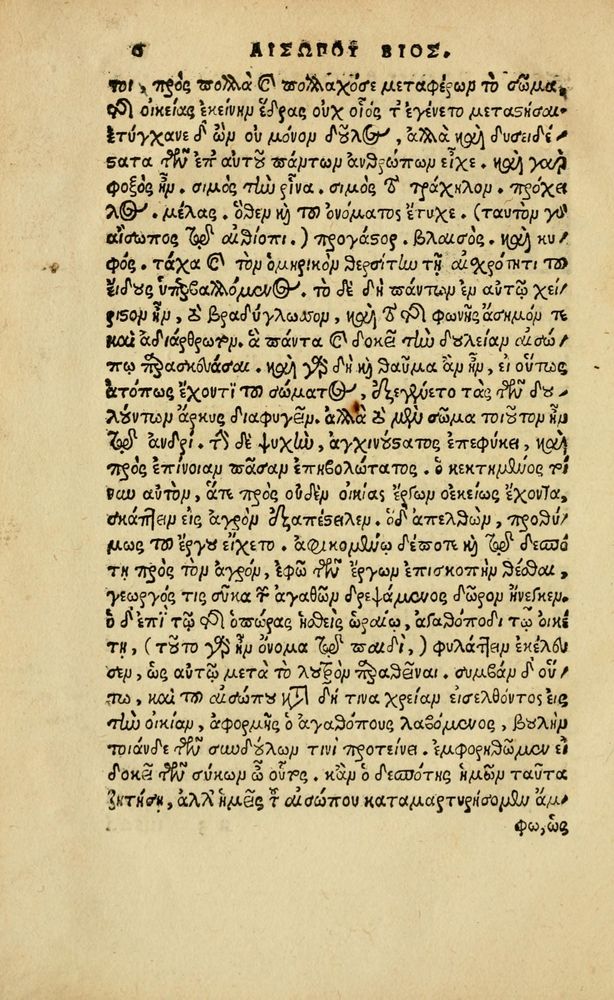 6 ΑΙΣΩΠΟΥ ΒΙΟΣ.
τοι, πρὸς πολλὰ καὶ πολλαχόσε μεταφέρων τὸ σῶμα,
τῆς οἰκείας ἐκείνην ἕδρας οὐχ οἷός τ' ἐγένετο μεταστῆσαι.
ἐτύγχανε δ' ὢν οὐ μόνον δοῦλος, ἀλλὰ καὶ δυσειδέ-
στατα τῶν ἐπ' αὐτοῦ πάντων ἀνθρώπων εἶχε. καὶ γὰρ
φοξὸς ἦν. σιμὸς τὴν ῥῖνα. σιμὸς τὸν τράχηλον. πρόχει
λος. μέλας. ὅθεν καὶ τοῦ ὀνόματος ἔτυχε. (ταυτὸν γὰρ
αἴσωπος τῷ αἰθίοπι.) προγάστωρ. βλαισός. καὶ κυ-
φός. τάχα καὶ τὸν ὁμηρικὸν θερσίτην τῇ αἰσχρότητι τοῦ
εἴδους ὑπερβαλλόμενος. τὸ δὲ δὴ πάντων ἐν αὐτῷ χεί
ριστον ἦν, τὸ βραδύγλωσσον, καὶ τὸ τῆς φωνῆς ἄσημόν τε
καὶ ἀδιάρθρωτον. ἃ πάντα καὶ δοκεῖ τὴν δουλείαν αἰσώ
πῳ παρασκευάσαι. καὶ γὰρ δὴ καὶ θαῦμα ἂν ἦν, εἰ οὕτως
ἀτόπως ἔχοντι τοῦ σώματος, ἐξεγένετο τὰς τῶν δου
λούντων ἄρκυς διαφυγεῖν. ἀλλὰ τὸ μὲν σῶμα τοιοῦτον ἦν
τῷ ἀνδρί. τὴν δὲ ψυχὴν, ἀγχινούστατος ἐπεφύκει, καὶ
πρὸς ἐπίνοιαν πᾶσαν ἐπηβολώτατος. ὁ κεκτημένος τοί
νυν αὐτὸν, ἅτε πρὸς οὐδὲν οἰκίας ἔργον οἰκείως ἔχοντα,
σκάπτειν εἰς ἀγρὸν ἐξαπέστειλεν. ὁ δ' ἀπελθὼν, προθύ-
μως τοῦ ἔργου εἴχετο. ἀφικομένῳ δέ ποτε καὶ τῷ δεσπό
τῃ πρὸς τὸν ἀγρὸν, ἐφ' ᾧ τῶν ἔργων ἐπισκοπὴν θέσθαι,
γεωργός τις σῦκα τῶν ἀγαθῶν δρεψάμενος δῶρον ἤνεγκεν.
ὁ δ' ἐπὶ τῷ τῆς ὀπώρας ἡσθεὶς ὡραίῳ, ἀγαθόποδι τῷ οἰκέ
τῃ, (τοῦτο γὰρ ἦν ὄνομα τῷ παιδὶ,) φυλάττειν ἐκέλευ
σεν, ὡς αὐτῷ μετὰ τὸ λουτρὸν παραθεῖναι. συμβὰν δ' οὕ-
τω, καὶ τοῦ αἰσώπου κατὰ δή τινα χρείαν εἰσελθόντος εἰς
τὴν οἰκίαν, ἀφορμῆς ὁ ἀγαθόπους λαβόμενος, βουλὴν
τοιάνδε τῶν συνδούλων τινὶ προτείνει. ἐμφορηθῶμεν εἰ
δοκεῖ τῶν σύκων ὦ οὗτος. κἂν ὁ δεσπότης ἡμῶν ταῦτα
ζητήσῃ, ἀλλ' ἡμεῖς τοῦ αἰσώπου καταμαρτυρήσομεν ἄμ-
φω, ὡς